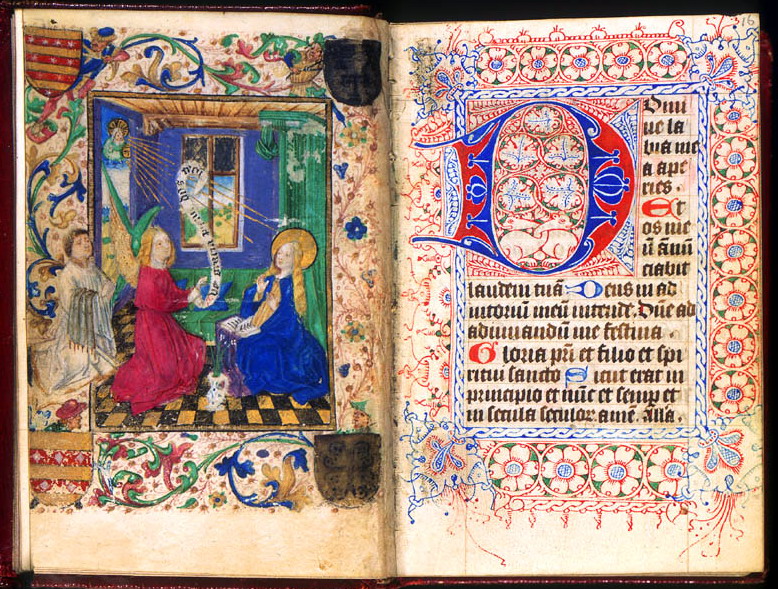 Domi
ne la
bia me
a ape
ries.
Et
os me
ū ānū
ciabit
laudem tuā Deus in ad
iutoriū meū intende. Dn̄e ad
adiuuandū me festina.
Gloria pr̄i et filio et spi
ritui sancto Sicut erat in
principio et nūc et semp et
in secula seculor amē. Alla.